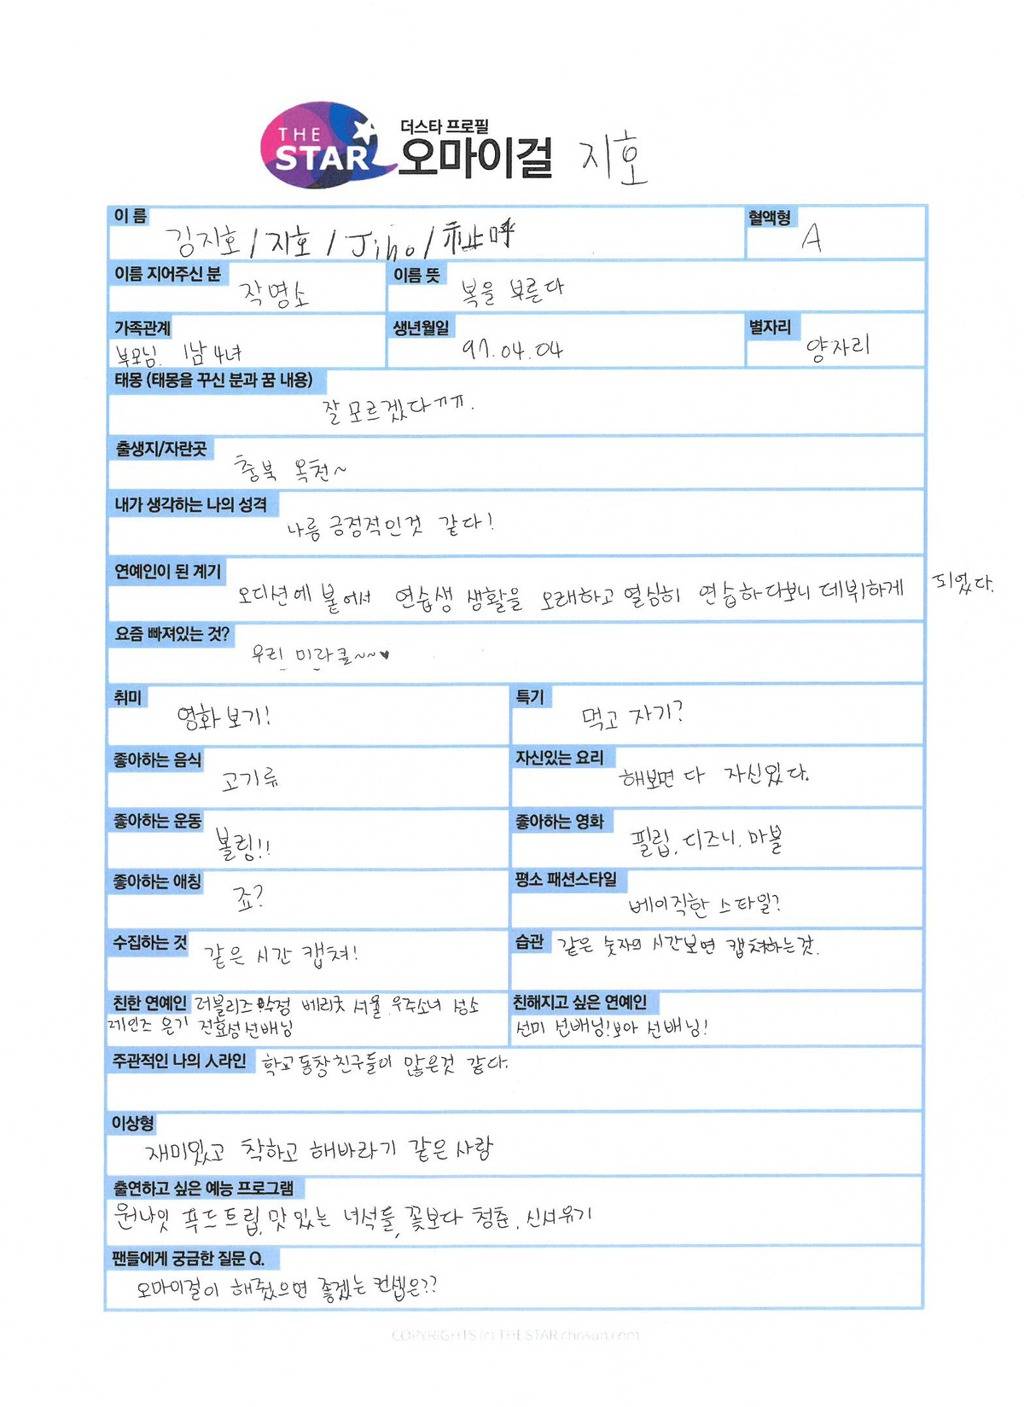 THE
STAR
더스타 프로필
오마이걸 지호
이 름
김지호 / 지호 / Jiho / 祉呼
혈액형
A
이름 지어주신 분
작명소
이름 뜻
복을 부른다
가족관계
부모님. 1남 4녀
생년월일
97.04.04
별자리
양자리
태몽 (태몽을 꾸신 분과 꿈 내용)
잘 모르겠다ㅠㅠ.
출생지/자란곳
충북 옥천~
내가 생각하는 나의 성격
나름 긍정적인것 같다!
연예인이 된 계기
오디션에 붙어서 연습생 생활을 오래하고 열심히 연습하다보니 데뷔하게 되었다.
요즘 빠져있는 것?
우리 미라클~~♥
취미
영화보기!
특기
먹고 자기?
좋아하는 음식
고기류
자신있는 요리
해보면 다 자신있다.
좋아하는 운동
볼링!!
좋아하는 영화
필립, 디즈니, 마블
좋아하는 애칭
죠?
평소 패션스타일
베이직한 스타일?
수집하는 것
같은 시간 캡쳐!
습관
같은 숫자의 시간보면 캡쳐하는것.
친한 연예인 러블리즈 수정 베리굿 서율 우주소녀 성소
레인즈 은기 전효성선배님
친해지고 싶은 연예인
선미 선배님! 보아 선배님!
주관적인 나의 人라인 학교동창친구들이 많은것 같다.
이상형
재미있고 착하고 해바라기 같은 사람
출연하고 싶은 예능 프로그램
원나잇 푸드트립, 맛있는 녀석들, 꽃보다 청춘, 신서유기
팬들에게 궁금한 질문 Q.
오마이걸이 해줬으면 좋겠는 컨셉은??
COPYRIGHTS (c) THE STAR chosun.com